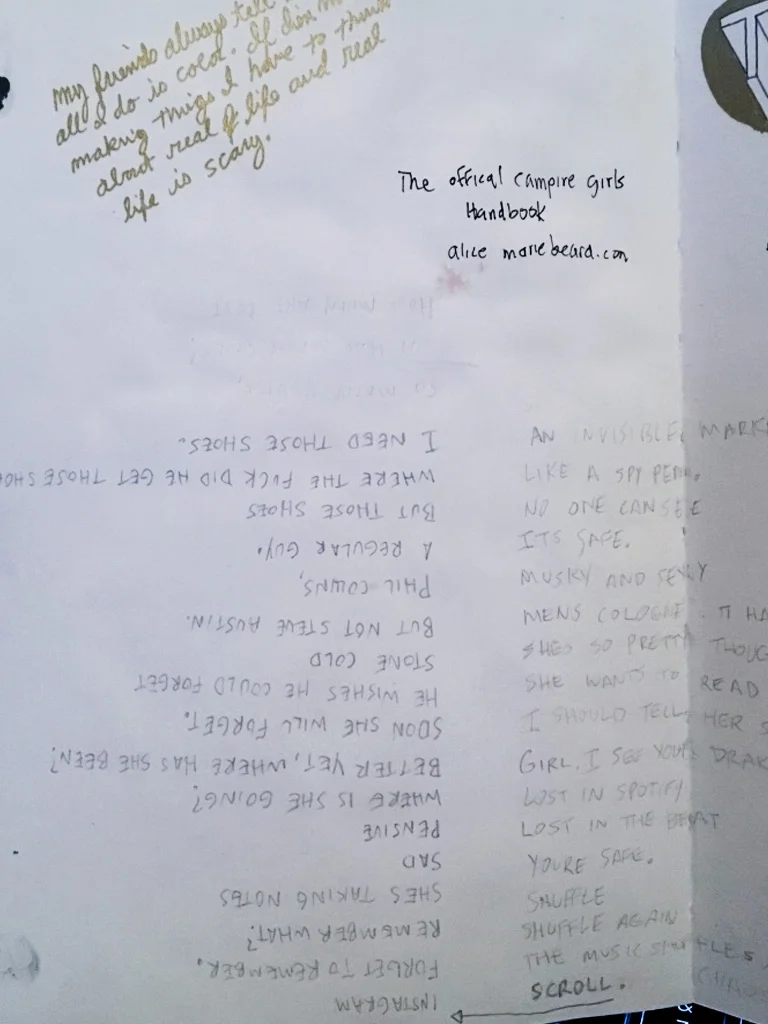 My friends always tell
all I do is
making things I have to think
about real life and real
life is scary.
The offical Campire girls
Handbook
alice marie beard.com
AN INVISIBLE
LIKE A SPY PEN.
NO ONE CAN SEE
ITS SAFE.
MUSKY AND SEXY
MENS COLOGNE.
SHES SO PRETTY
SHE WANTS TO READ
I SHOULD TELL HER
GIRL, I SEE YOUR
LOST IN SPOTIFY
LOST IN THE BEAT
YOURE SAFE.
SHUFFLE
SHUFFLE AGAIN
THE MUSIC SHUFFLES
SCROLL.
INSTAGRAM
FORGET TO REMEMBER.
REMEMBER WHAT?
SHE'S TAKING NOTES
SAD
PENSIVE
WHERE IS SHE GOING?
BETTER YET, WHERE HAS SHE BEEN?
SOON SHE WILL FORGET.
HE WISHES HE COULD FORGET
STONE COLD
BUT NOT STEVE AUSTIN.
PHIL COLLINS,
A REGULAR GUY.
BUT THOSE SHOES
WHERE THE FUCK DID HE GET THOSE
I NEED THOSE SHOES.